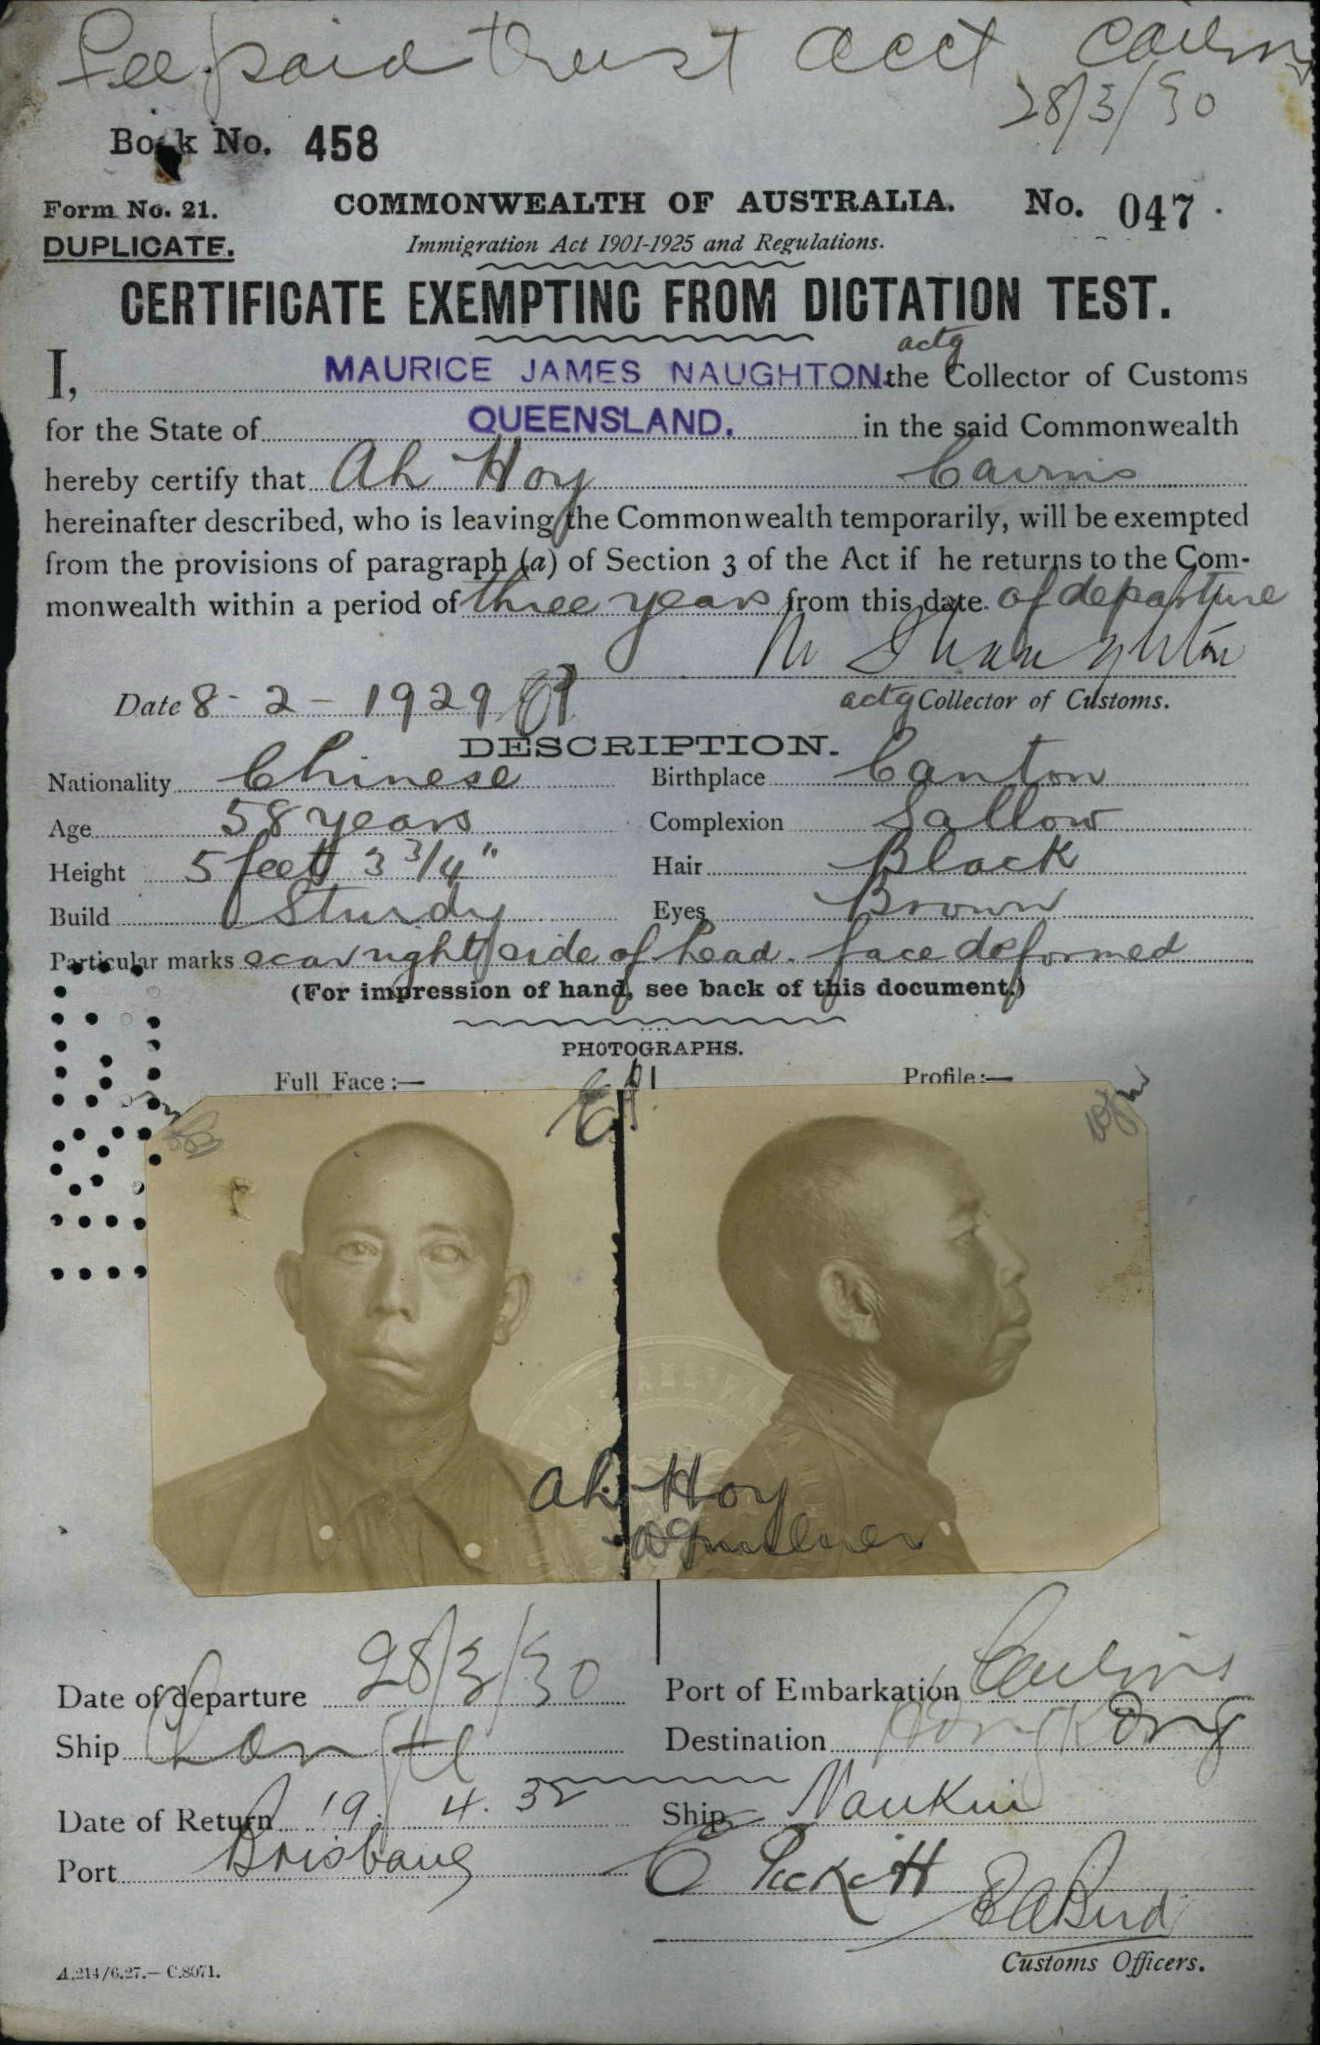 Fee paid trust acct Cairns
28/3/30
Book No. 458
Form No. 21.
COMMONWEALTH OF AUSTRALIA.
No. 047.
DUPLICATE.
Immigration Act 1901-1925 and Regulations.
CERTIFICATE EXEMPTING FROM DICTATION TEST.
actg
I, MAURICE JAMES NAUGHTON the Collector of Customs
for the State of QUEENSLAND. in the said Commonwealth
hereby certify that Ah Hoy Cairns
hereinafter described, who is leaving the Commonwealth temporarily, will be exempted
from the provisions of paragraph (a) of Section 3 of the Act if he returns to the Com-
monwealth within a period of three years from this date of departure
M J Naughton
Date 8-2-1929
actg Collector of Customs.
DESCRIPTION.
Nationality Chinese Birthplace Canton
Age 58 years Complexion Sallow
Height 5 feet 3 3/4" Hair Black
Build Sturdy Eyes Brown
Particular marks scar right side of head. face deformed
(For impression of hand, see back of this document.)
PHOTOGRAPHS.
Full Face:— Profile:—
Ah Hoy
Date of departure 28/3/30 Port of Embarkation Cairns
Ship Changte Destination Hong Kong
Date of Return 19. 4. 32 Ship Nankin
Port Brisbane
E Peckett
E A Bird
Customs Officers.
A.214/6.27.—C.8071.